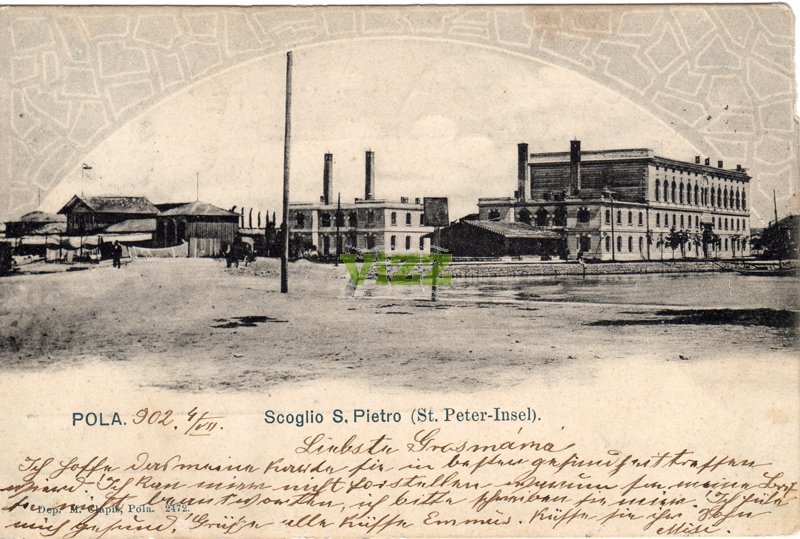 vizz
POLA. 902. 4/VII.
Scoglio S. Pietro (St. Peter-Insel).
Liebste Grosmámá
Ich hoffe das meine Karde sie in besten gesundheit treffen
werd. Ich kan mir nicht forstellen warum sie meine
nicht beantworten, ich bitte schreiben sie mir. Ich füle
mich gesund. Grüße alle Küsse Emmus. Küsse sie ihr
Dep. M. Clapis, Pola. 2472.